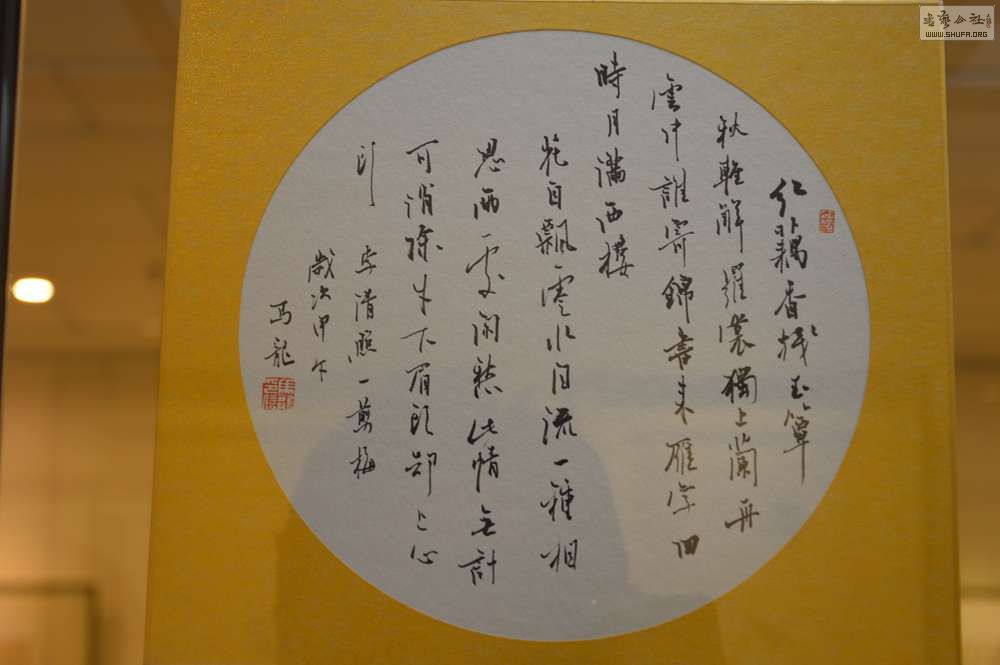 红藕香殘玉簟
秋輕解羅裳獨上蘭舟
雲中誰寄錦書来雁字回
時月滿西樓
花自飄零水自流一種相
思兩處闲愁此情无計
可消除才下眉头却上心
头 李清照一剪梅
歲次甲午
馬龍
书艺公社
WWW.SHUFA.ORG